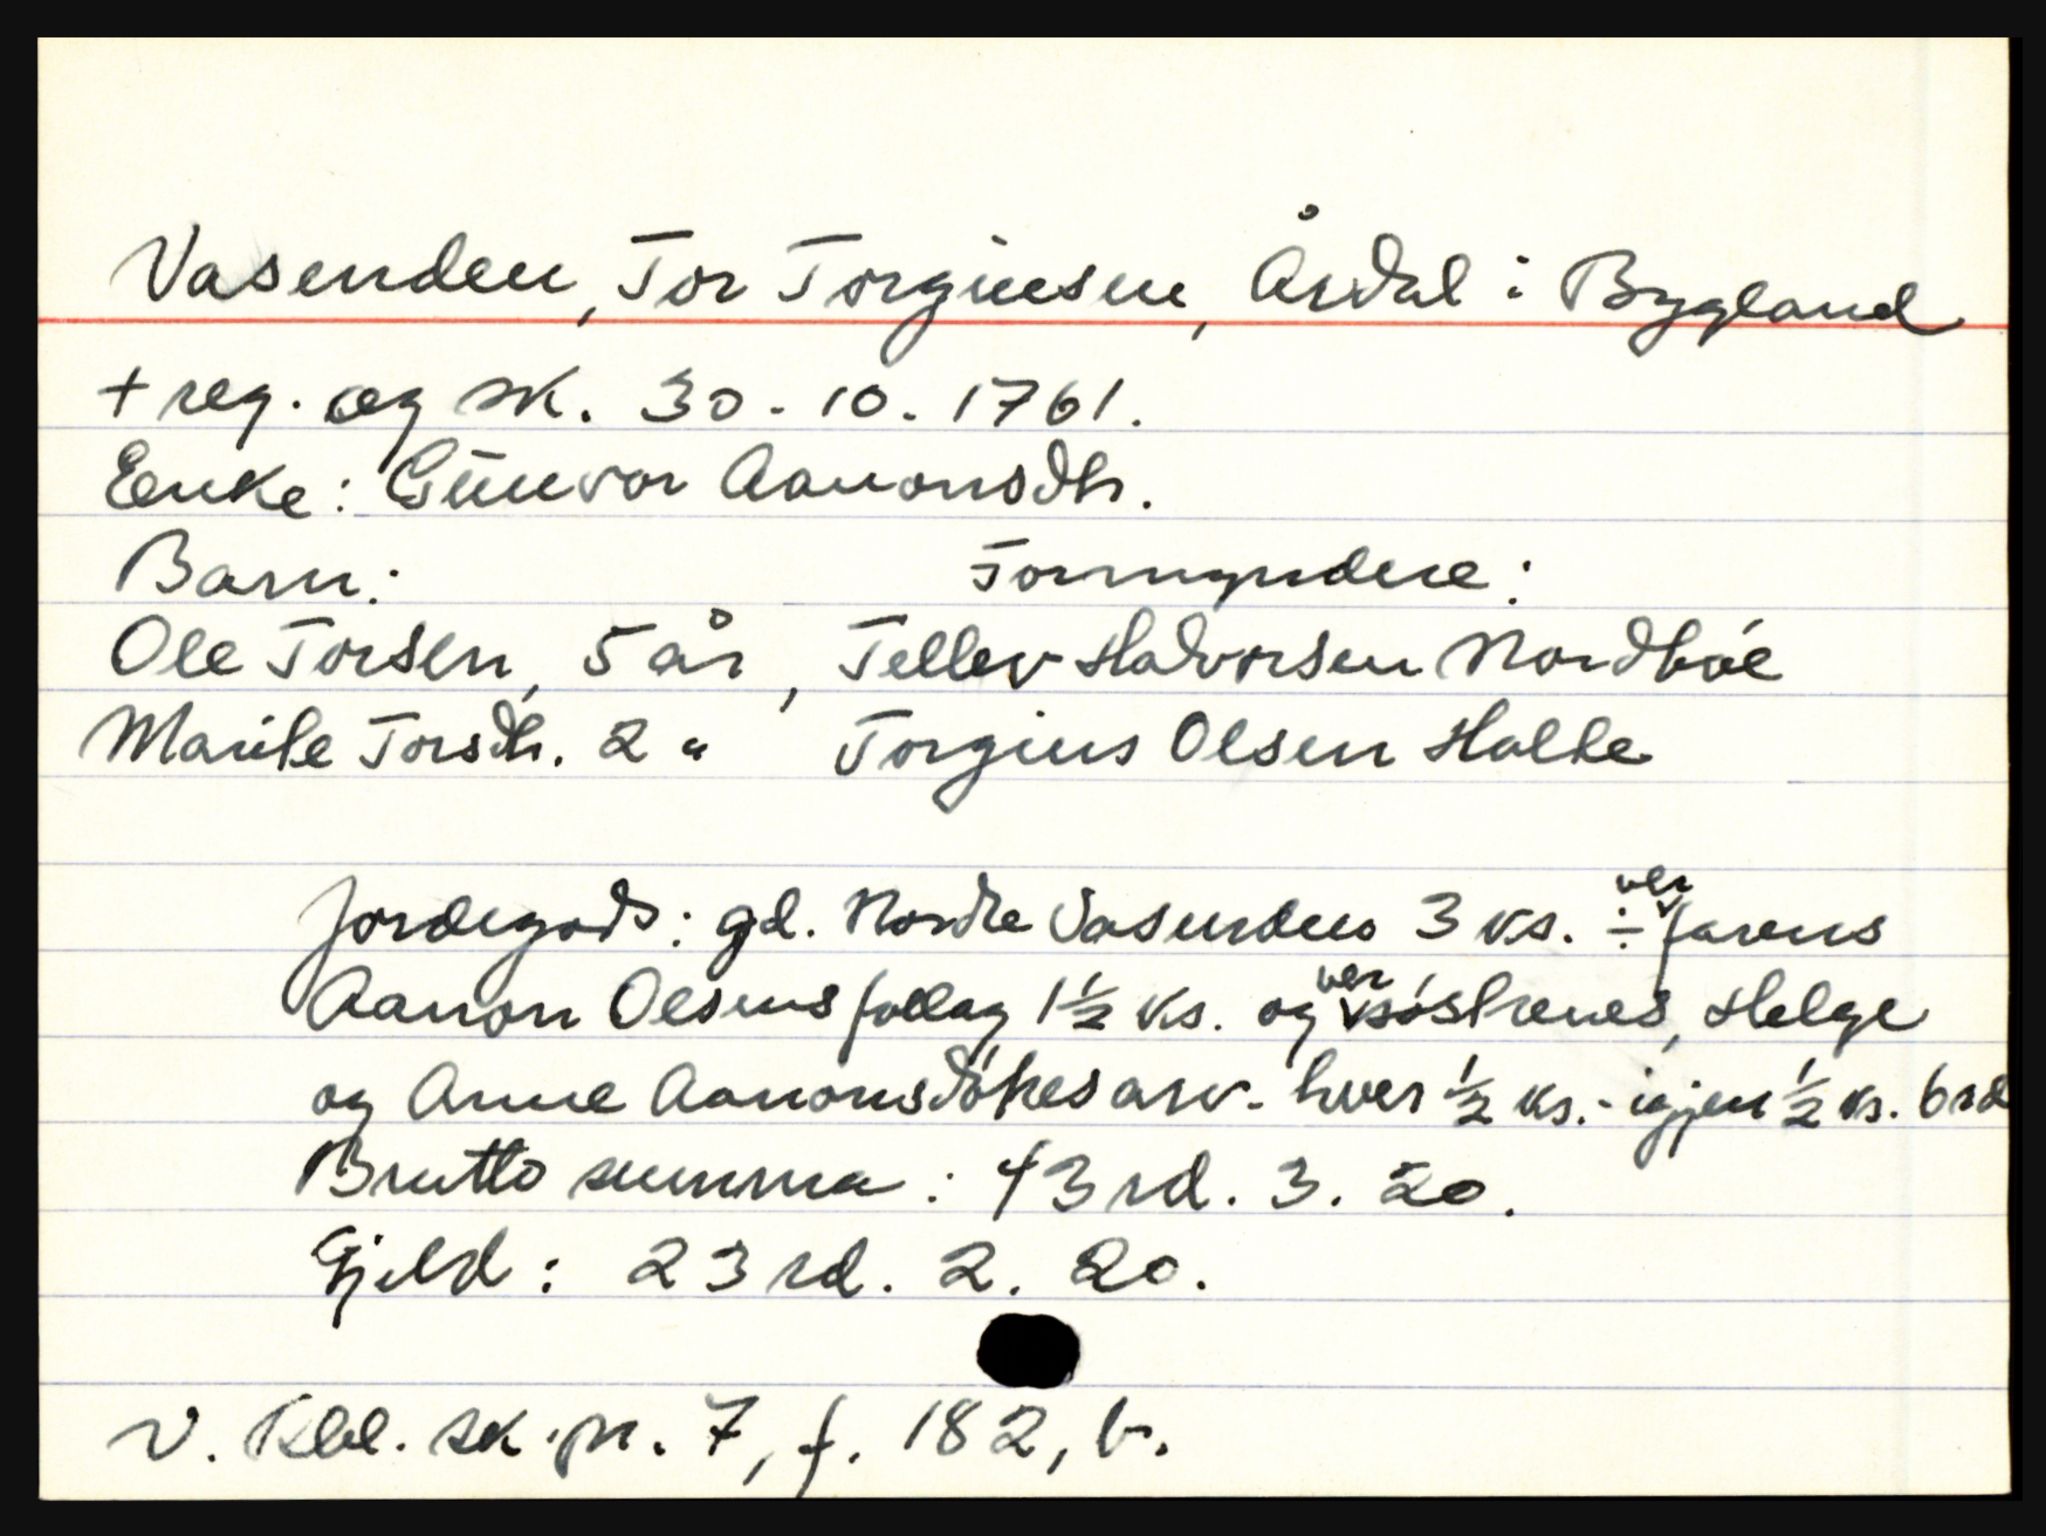 Vasenden, Tor Torgiusen, Årdal i Bygland
+ reg. og sk. 30.10.1761.
Enke: Gunvor Aanonsdtr.
Barn: Formyndere:
Ole Torsen, 5 år, Tellev Halvorsen Nordbøe
Marite Torsdtr. 2 " Torgius Olsen Halte
Jordegods: gd. Nordre Vasenden 3 ks. ÷ ver farens
Aanon Olsens follag 1½ ks. og ver søstrenes, Helge
og Anne Aanonsdøtres arv. hver ½ ks. - igjen ½ ks. 6 rd
Brutto summa: 43 rd. 3. 20.
Gjeld: 23 rd. 2. 20.
V. Rbl. sk.pr. 7, f. 182, b.